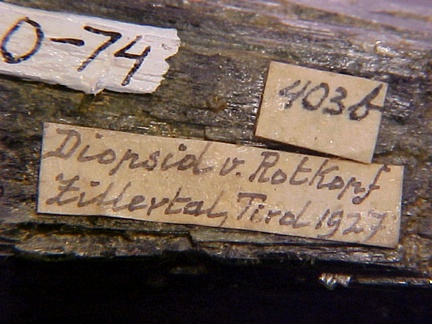 0-74
403b
Diopsid v. Rotkopf
Zillertal, Tirol 1927